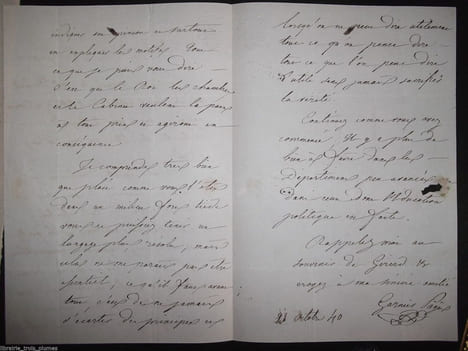 indions son
en expliquer les motifs. Tout
ce que je puis vous dire
c'est que le Roi les chambres
et le Cabinet veulent la paix
à tout prix et agiront en
conséquence.
Je comprends très bien
que placé comme vous l'êtes
dans un milieu plus tiède
vous ne puissiez tenir un
langage plus résolu, mais
cela ne me paraît pas être
essentiel; ce qu'il faut avant
tout, c'est de ne jamais
s'écarter des principes et
lorsqu'on ne peut dire
tout ce qu'on pense dire
tout ce que l'on peut dire
d'utile sans jamais sacrifier
la vérité.
Continuez comme vous avez
commencé. Il y a plus de
bien à faire dans les
départements peu avancés
que dans ceux dont l'éducation
politique est faite.
Rappelez moi au
souvenir de Girard et
croyez à ma sincère amitié
Garnier Pagès
23 octobre 40
librairie_trois_plumes